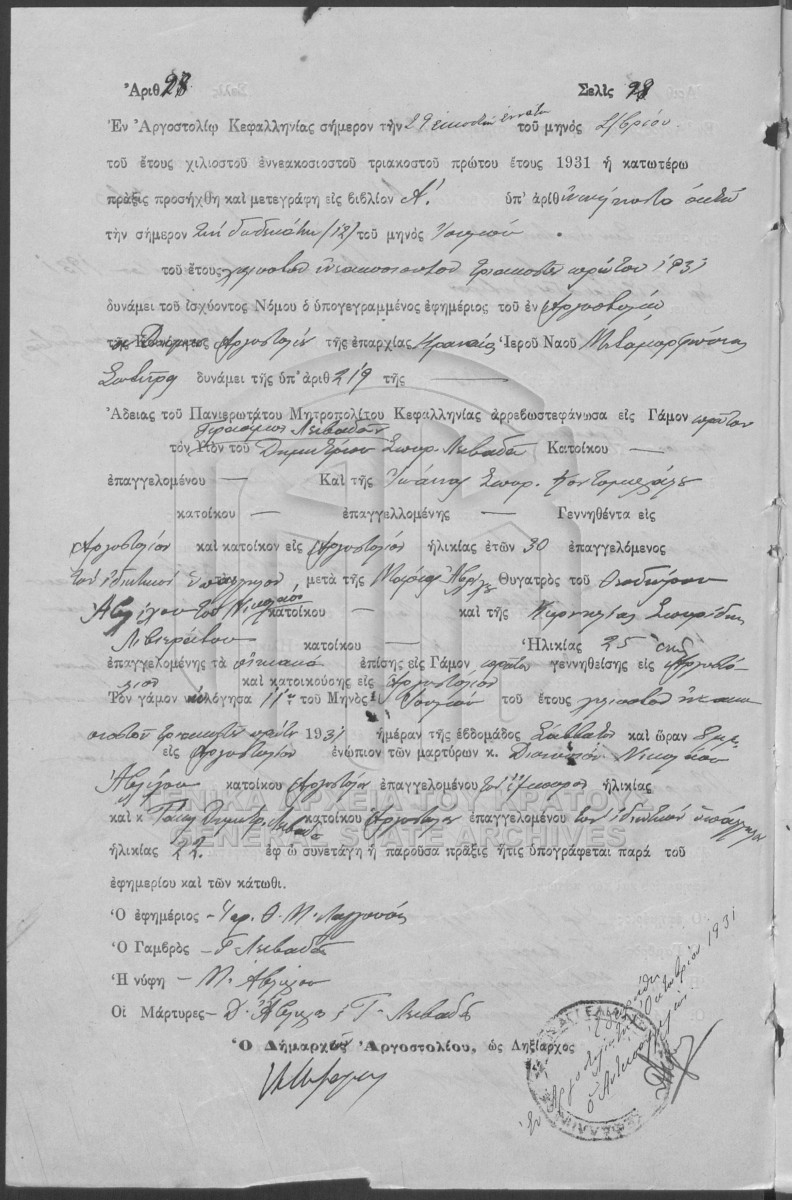 Ἀριθ. 28 Σελὶς 98
Ἐν Ἀργοστολίῳ Κεφαλληνίας σήμερον τὴν 29 εἰκοστὴν ἐννάτην τοῦ μηνὸς
τοῦ ἔτους χιλιοστοῦ ἐννεακοσιοστοῦ τριακοστοῦ πρώτου ἔτους 1931 ἡ κατωτέρω
πρᾶξις προσήχθη καὶ μετεγράφη εἰς βιβλίον Α΄. ὑπ' ἀριθ ὀκτὼ
τὴν σήμερον τὴν δωδεκάτην (12) τοῦ μηνὸς Ἰουλίου
τοῦ ἔτους χιλιοστοῦ ἐνεακοσιοστοῦ τριακοστοῦ πρώτου 1931
δυνάμει τοῦ ἰσχύοντος Νόμου ὁ ὑπογεγραμμένος ἐφημέριος τοῦ ἐν Ἀργοστολίῳ
Ἀργοστολίου τῆς ἐπαρχίας Κραναίας Ἱεροῦ Ναοῦ Μεταμορφώσεως
Σωτῆρος δυνάμει τῆς ὑπ' ἀριθ 219 τῆς —
Ἀδειας τοῦ Πανιερωτάτου Μητροπολίτου Κεφαλληνίας ἀρρεβωστεφάνωσα εἰς Γάμον πρῶτον
Γεράσιμον Λειβαδᾶν
τὸν Υἱὸν τοῦ Δημητρίου Σπυρ. Λειβαδᾶ Κατοίκου —
ἐπαγγελομένου — Καὶ τῆς Ἰωάννας Σπυρ.
κατοίκου — ἐπαγγελλομένης — Γεννηθέντα εἰς
Ἀργοστόλιον καὶ κατοίκον εἰς Ἀργοστόλιον ἡλικίας ἐτῶν 30 ἐπαγγελόμενος
τὸν ἰδιωτικὸν ὑπάλληλον μετὰ τῆς Μαρίας Θυγατρὸς τοῦ Θεοδώρου
Ἀβλίχου τοῦ Νικολάου κατοίκου — καὶ τῆς Κορνηλίας Σπυρίδωνος
Λιβιεράτου κατοίκου — Ἡλικίας 25 ἐτῶν
ἐπαγγελομένης τὰ οἰκιακὰ ἐπίσης εἰς Γάμον πρῶτον γεννηθείσης εἰς Ἀργοστό-
λιον καὶ κατοικούσης εἰς Ἀργοστόλιον
Τὸν γάμον εὐλόγησα 11ην τοῦ Μηνὸς Ἰουλίου τοῦ ἔτους χιλιοστοῦ ἐνεακο-
σιοστοῦ τριακοστοῦ πρώτου 1931 ἡμέραν τῆς ἑβδομάδος Σάββατον καὶ ὥραν
εἰς Ἀργοστόλιον ἐνώπιον τῶν μαρτύρων κ. Διονυσίου Νικολάου
Ἀβλίχου κατοίκου Ἀργοστολίου ἐπαγγελομένου τὸν ἔμπορον ἡλικίας
καὶ κ Δημητρ. Λειβαδᾶ κατοίκου Ἀργοστολίου ἐπαγγελομένου τὸν ἰδιωτικὸν ὑπάλληλον
ἡλικίας 22. ἐφ ᾧ συνετάγη ἡ παροῦσα πρᾶξις ἥτις ὑπογράφεται παρὰ τοῦ
ἐφημερίου καὶ τῶν κάτωθι.
Ὁ ἐφημέριος – Ἱερ. Θ. Μ.
Ὁ Γαμβρὸς – Γ. Λειβαδᾶς
Ἡ νύφη – Μ. Ἀβλίχου
Οἱ Μάρτυρες – Δ. Ἀβλιχος Γ. Λειβαδᾶς
Ὁ Δήμαρχος Ἀργοστολίου, ὡς Ληξίαρχος
Ἐν Ἀργοστολίῳ τῇ Ὀκτωβρίου 1931
ΓΕΝΙΚΑ ΑΡΧΕΙΑ ΤΟΥ ΚΡΑΤΟΥΣ
GENERAL STATE ARCHIVES